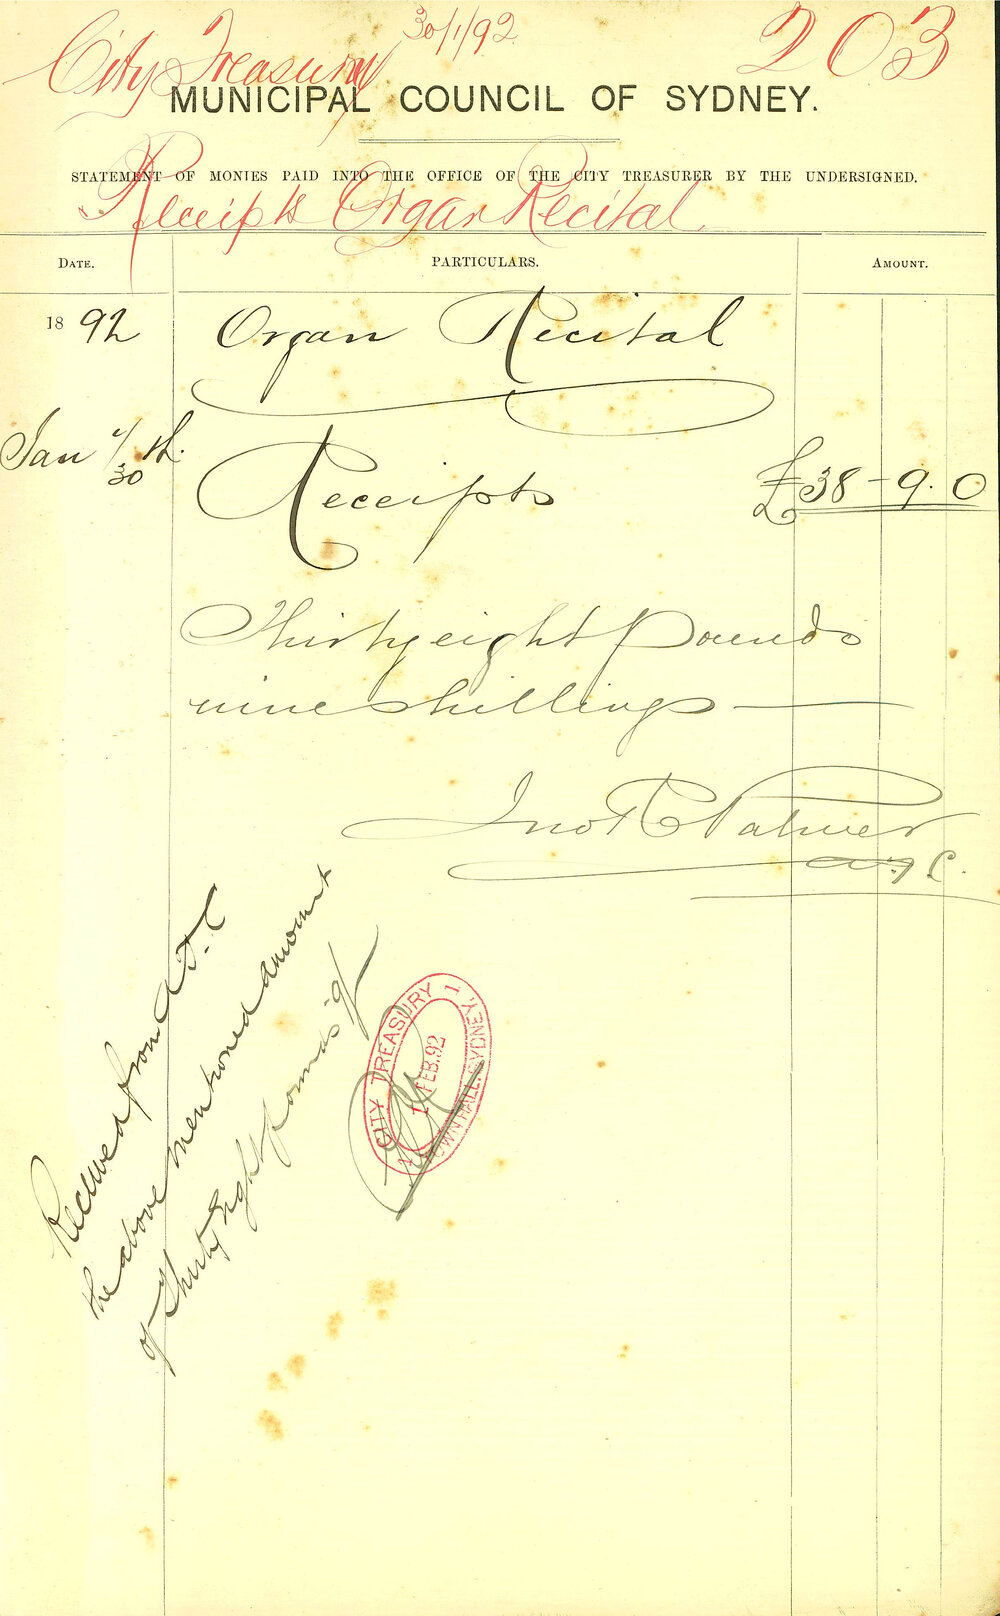 City Treasury 30/1/92 203
MUNICIPAL COUNCIL OF SYDNEY.
STATEMENT OF MONIES PAID INTO THE OFFICE OF THE CITY TREASURER BY THE UNDERSIGNED.
Receipts Organ Recital
DATE. PARTICULARS. AMOUNT.
1892 Organ Recital
Jan 30th. Receipts £38-9.0
Thirty eight pounds
nine shillings
Jno R C Palmer
C.
Received from
the above mentioned amount
of Thirty Eight pounds 9/-
CITY TREASURY
1 FEB.92
TOWN HALL. SYDNEY.